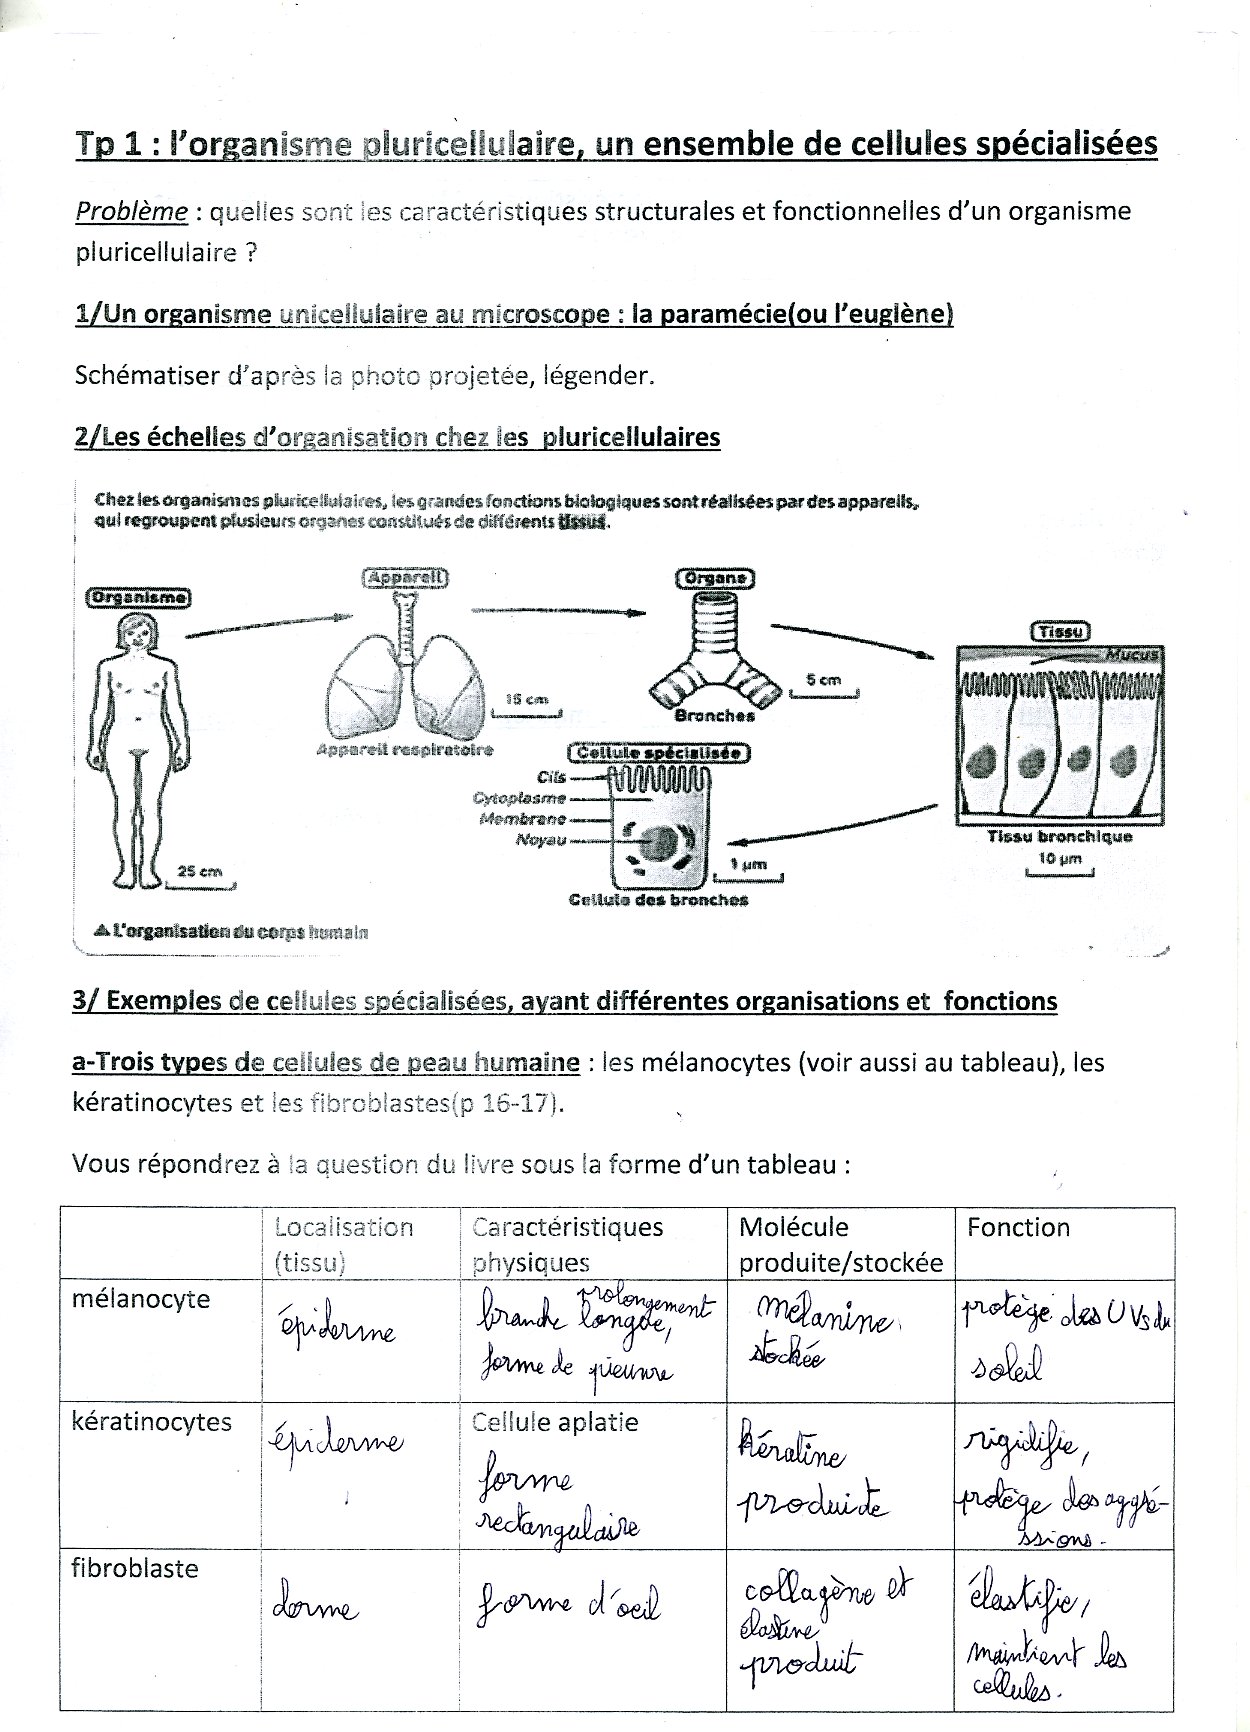 Tp 1 : l'organisme pluricellulaire, un ensemble de cellules spécialisées
Problème : quelles sont les caractéristiques structurales et fonctionnelles d'un organisme
pluricellulaire ?
1/Un organisme unicellulaire au microscope : la paramécie(ou l'euglène)
Schématiser d'après la photo projetée, légender.
2/Les échelles d'organisation chez les pluricellulaires
Chez les organismes pluricellulaires, les grandes fonctions biologiques sont réalisées par des appareils,
qui regroupent plusieurs organes constitués de différents tissus.
Organisme
Appareil
Organe
Tissu
Mucus
15 cm
5 cm
Bronches
Appareil respiratoire
Cellule spécialisée
Cils
Cytoplasme
Membrane
Noyau
Tissu bronchique
10 µm
1 µm
25 cm
Cellule des bronches
▲ L'organisation du corps humain
3/ Exemples de cellules spécialisées, ayant différentes organisations et fonctions
a-Trois types de cellules de peau humaine : les mélanocytes (voir aussi au tableau), les
kératinocytes et les fibroblastes(p 16-17).
Vous répondrez à la question du livre sous la forme d'un tableau :
Localisation
(tissu)
Caractéristiques
physiques
Molécule
produite/stockée
Fonction
mélanocyte
épiderme
prolongement
branche longue,
forme de pieuvre
mélanine
stockée
protège des UVs du
soleil
kératinocytes
épiderme
Cellule aplatie
forme
rectangulaire
kératine
produite
rigidifie,
protège des aggré-
ssions.
fibroblaste
derme
forme d'oeil
collagène et
élastine
produit
élastifie,
maintient les
cellules.